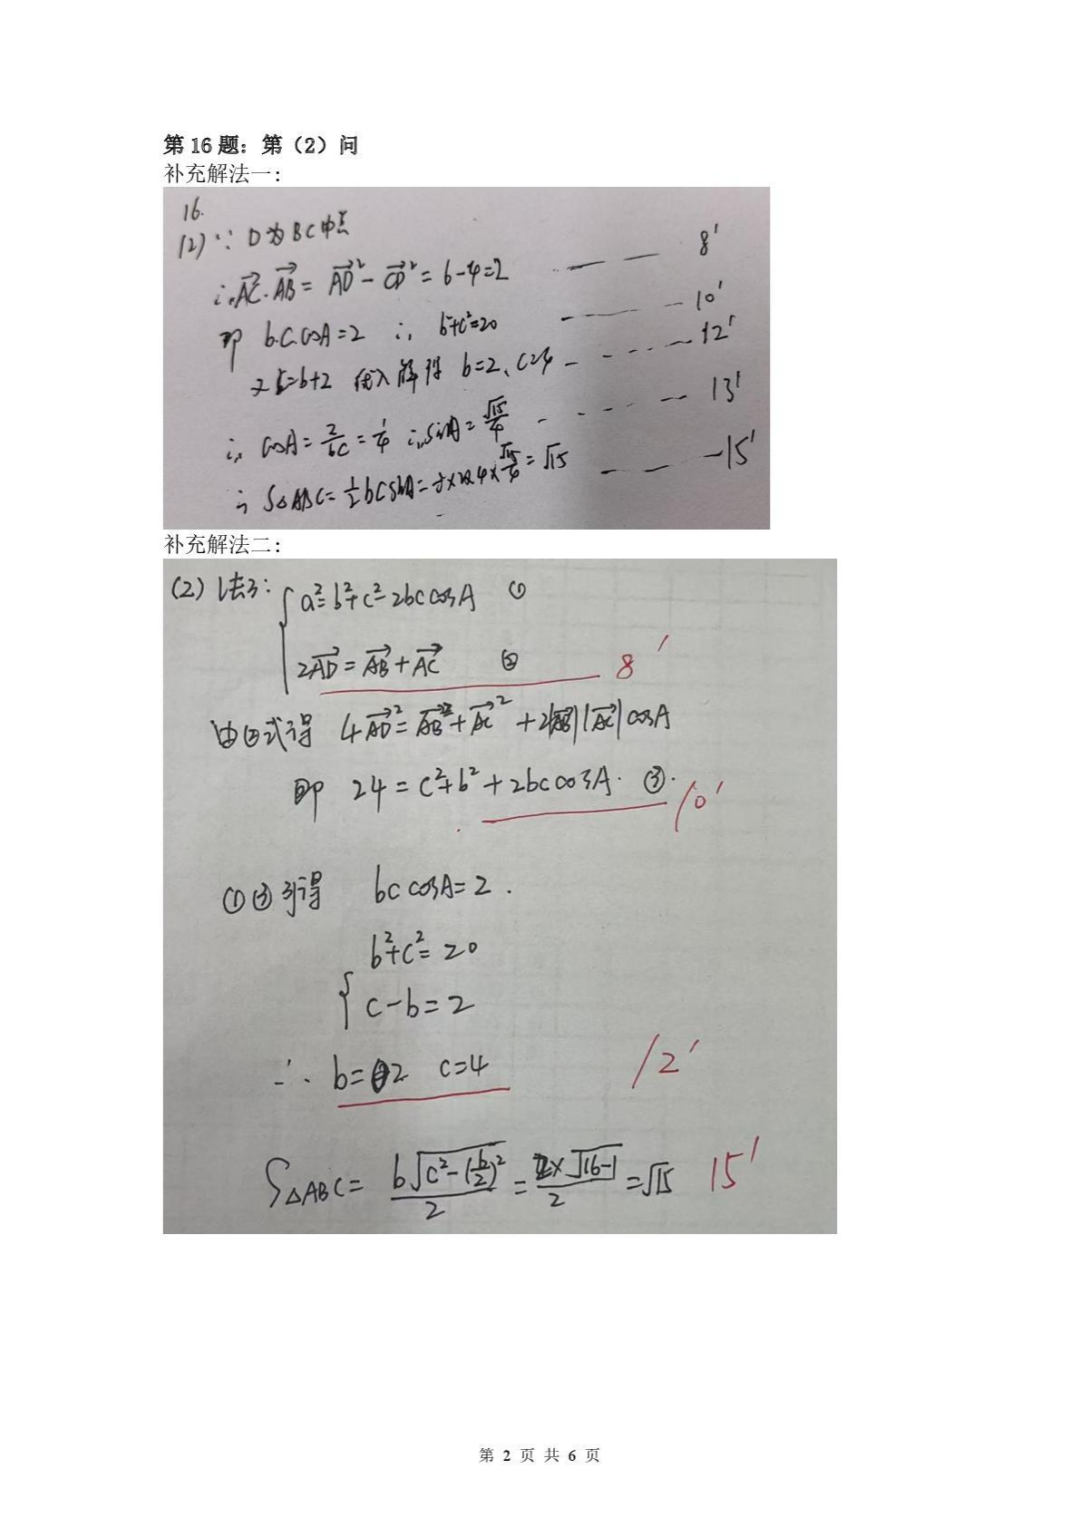 第 16 题：第（2）问
补充解法一：
16.
(2) ∵ D为BC中点
∴ AC·AB = AD² - CD² = 6-4=2 —— 8'
即 b·c·cosA=2 ∴ b²+c²=20 —— 10'
又 c=b+2 代入解得 b=2、c=4 —— 12'
∴ cosA = 2/bc = 1/4 ∴ sinA = √15/4 —— 13'
∴ S△ABC = 1/2 bcsinA = 1/2×2×4×√15/4 = √15 —— 15'
补充解法二：
(2) 法3: { a²=b²+c²-2bc cosA ①
2AD = AB + AC ② 8'
由②式得 4AD² = AB² + AC² + 2|AB||AC|cosA
即 24 = c²+b²+2bc cosA. ③. 10'
①③可得 bc cosA=2.
{ b²+c²=20
c-b=2
∴ b=2 c=4 12'
S△ABC = b√(c²-(b/2)²)/2 = 2×√(16-1)/2 = √15 15'
第 2 页 共 6 页